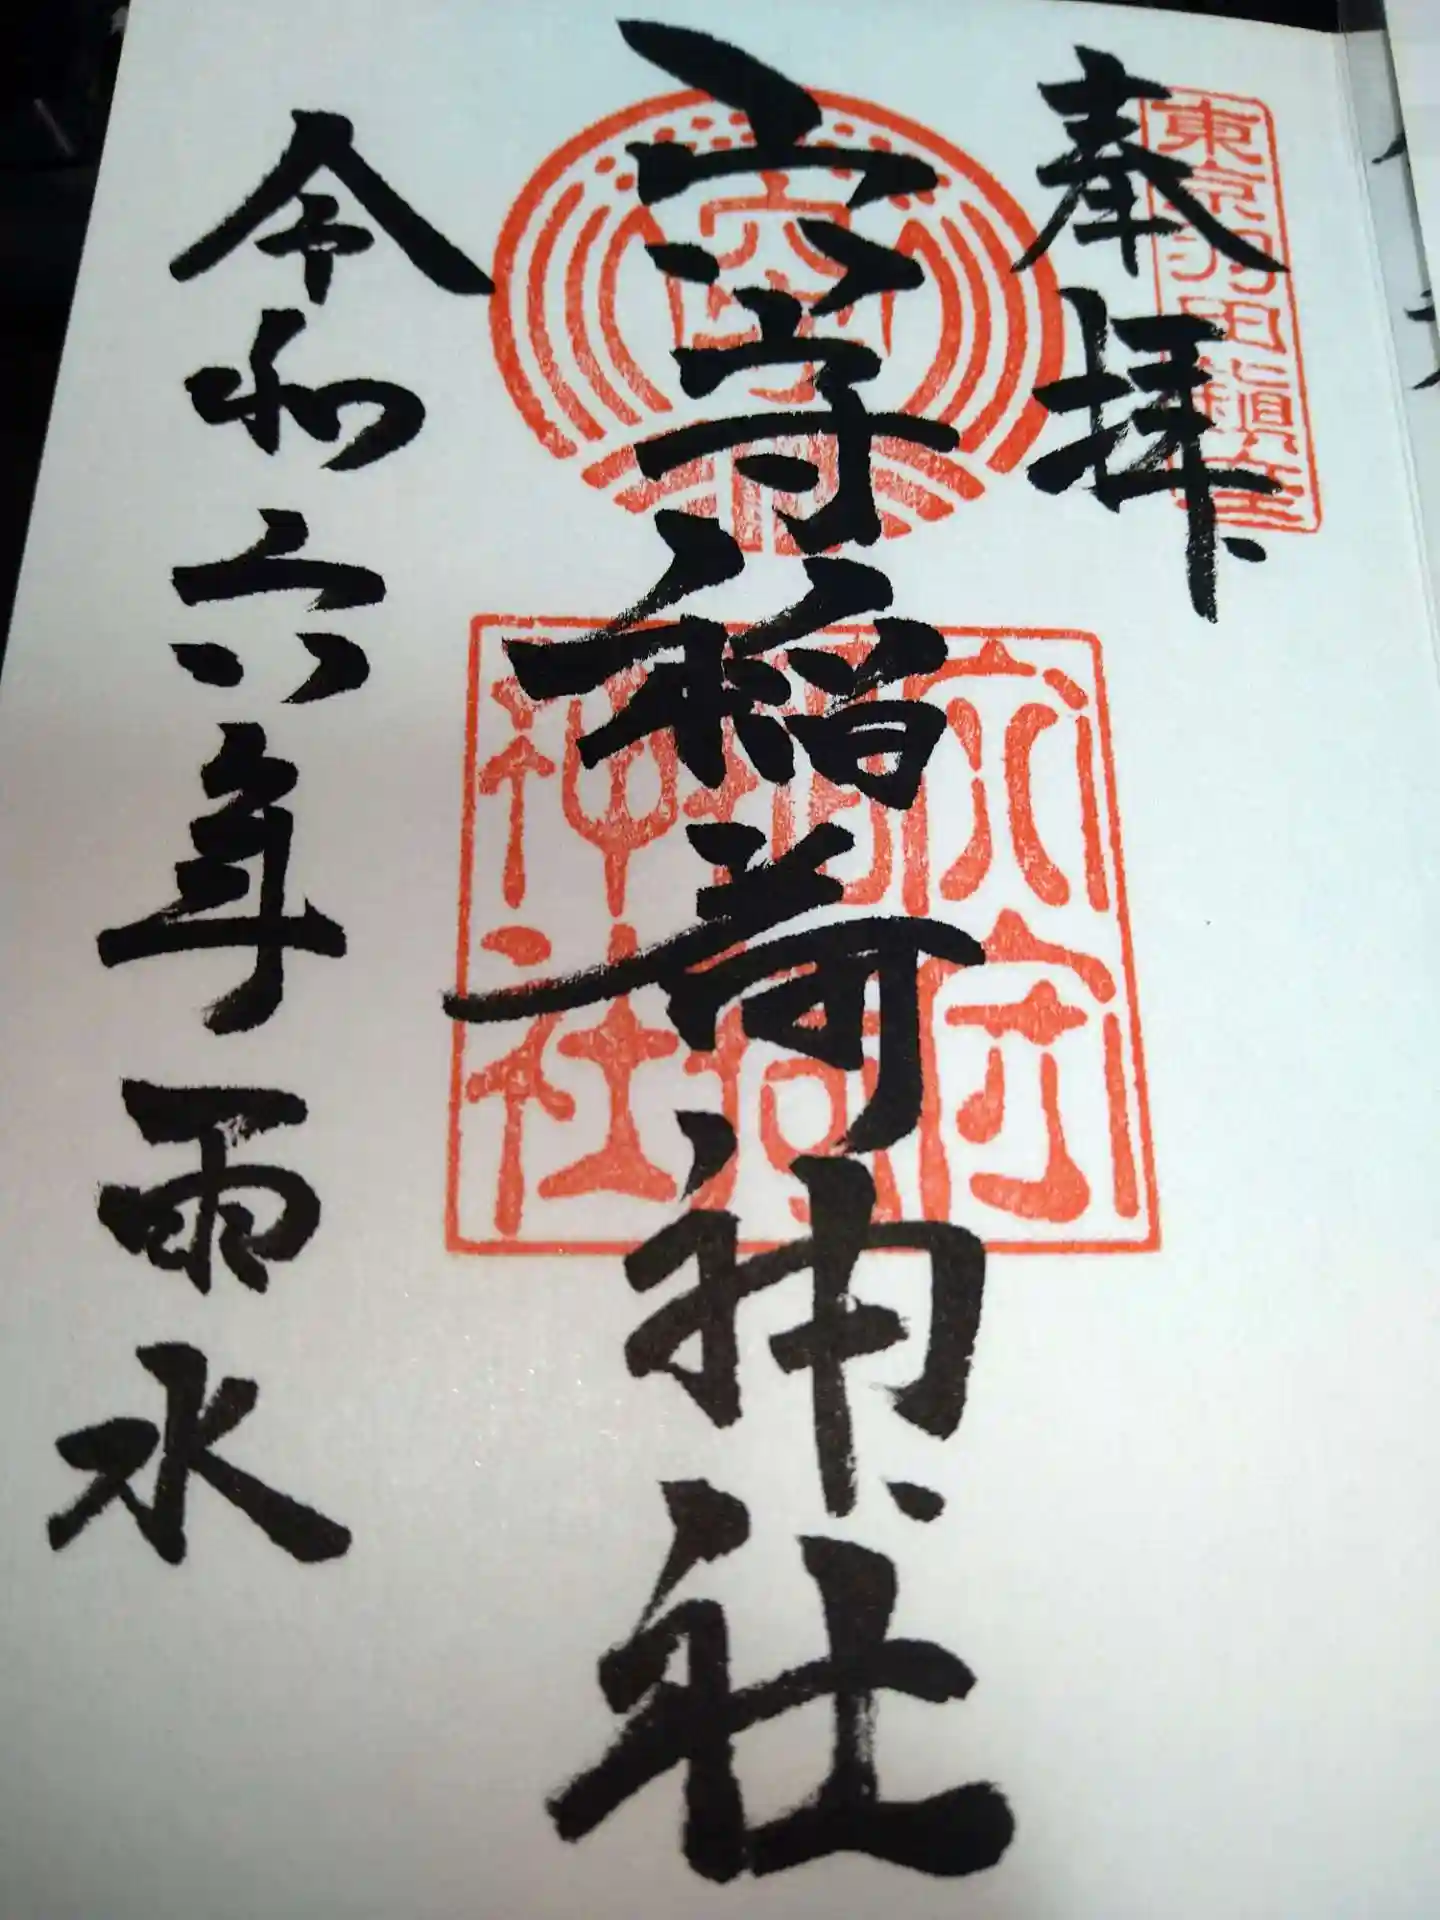 奉拝
東京羽田鎮座
穴守稲荷神社
穴守
稲荷
神社
令和六年雨水